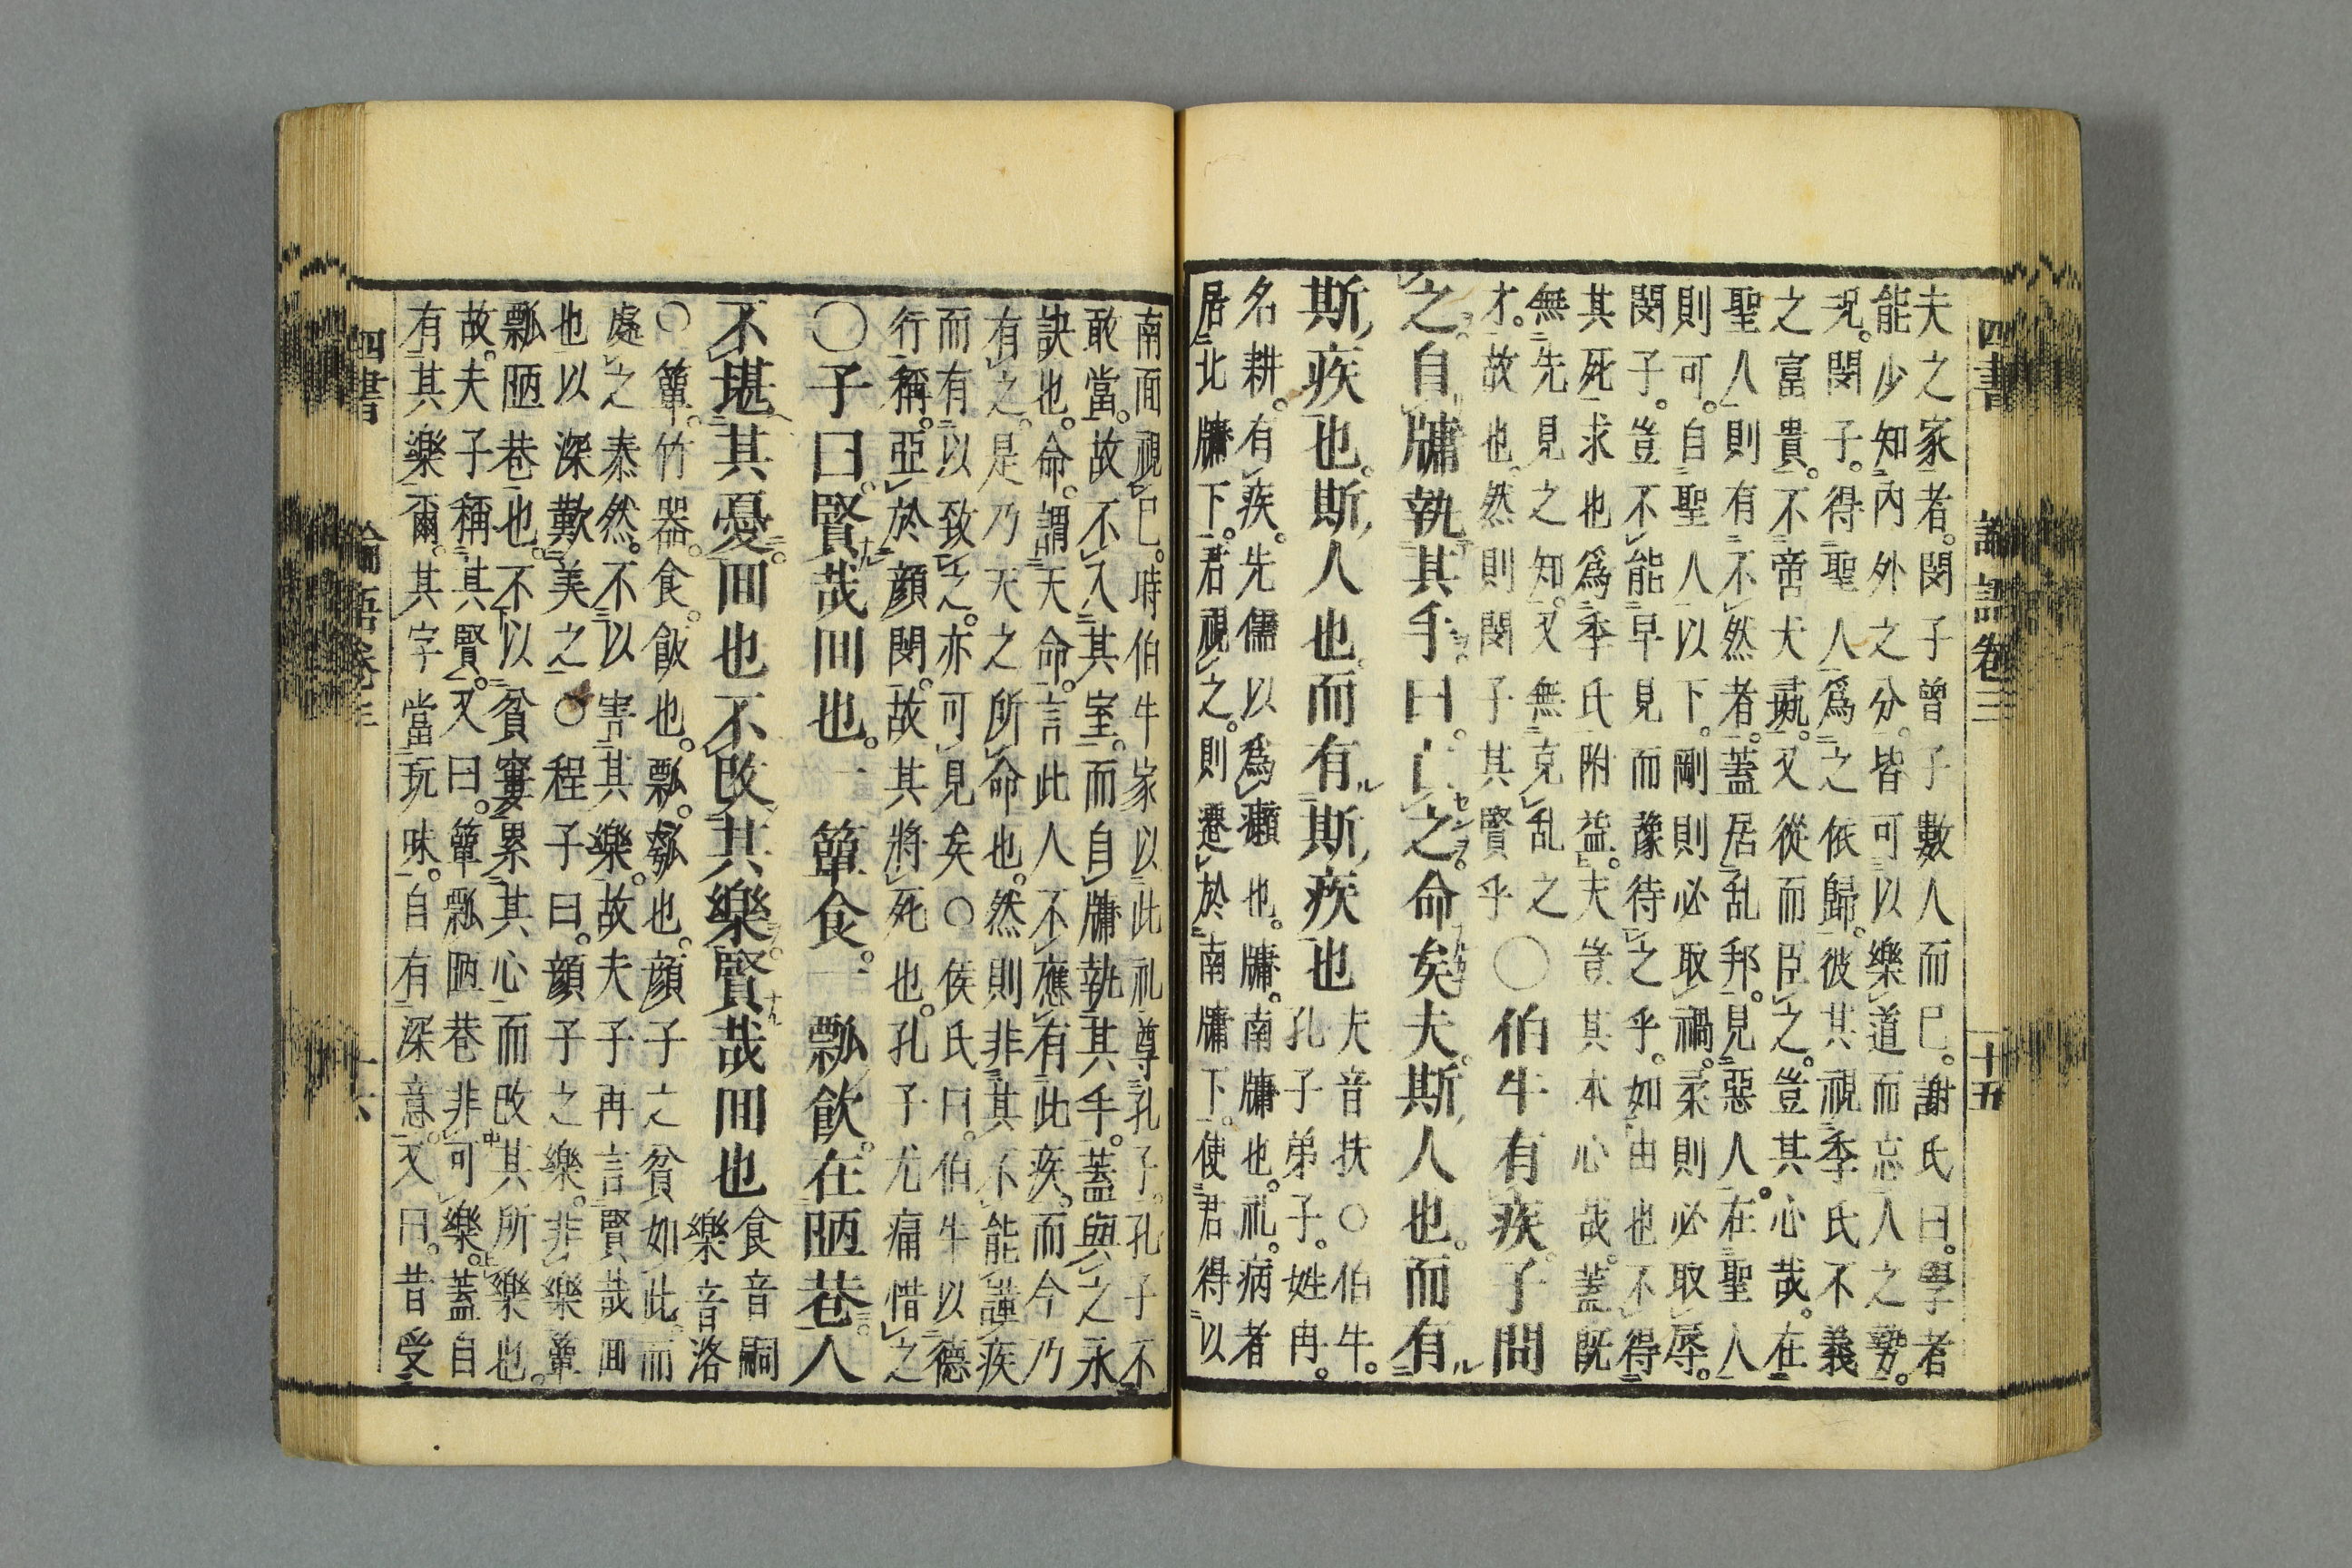 四書 論語卷三 十五
夫之家者。閔子曾子數人而已。謝氏曰。學者
能少知內外之分。皆可以樂道而忘人之勢。
況。閔子。得聖人爲之依歸。彼其視季氏不義
之富貴。不啻犬彘。又從而臣之。豈其心哉。在
聖人則有不然者。蓋居乱邦。見惡人。在聖人
則可。自聖人以下。剛則必取禍。柔則必取辱。
閔子。豈不能早見而豫待之乎。如由也不得
其死求也爲季氏附益。夫豈其本心哉。蓋既
無先見之知。又無克乱之
才。故也。然則閔子其賢乎
〇伯牛有疾。子問
之。自牖執其手。曰。亡之。命矣夫。斯人也。而有
斯疾也。斯人也。而有斯疾也
夫音扶〇伯牛。
孔子弟子。姓冉。
名耕。有疾。先儒以爲癩也。牖。南牖也。礼。病者
居北牖下。君視之。則遷於南牖下。使君得以
南面視已。時伯牛家以此礼尊孔子。孔子不
敢當。故不入其室。而自牖執其手。蓋與之永
訣也。命。謂天命。言此人不應有此疾。而今乃
有之。是乃天之所命也。然則非其不能謹疾
而有以致之。亦可見矣〇侯氏曰。伯牛以德
行稱。亞於顔閔。故其將死也。孔子尤痛惜之
〇子曰。賢哉回也。一簞食。一瓢飲。在陋巷。人
不堪其憂。回也不改其樂。賢哉回也
食音嗣
樂音洛
〇簞。竹器。食。飯也。瓢。瓠也。顔子之貧如此。而
處之泰然。不以害其樂。故夫子再言賢哉回
也以深歎美之〇程子曰。顔子之樂。非樂簞
瓢陋巷也。不以貧窶累其心而改其所樂也。
故。夫子稱其賢。又曰。簞瓢陋巷非可樂。蓋自
有其樂爾。其字當玩味。自有深意。又曰。昔受
四書 論語卷三 十六